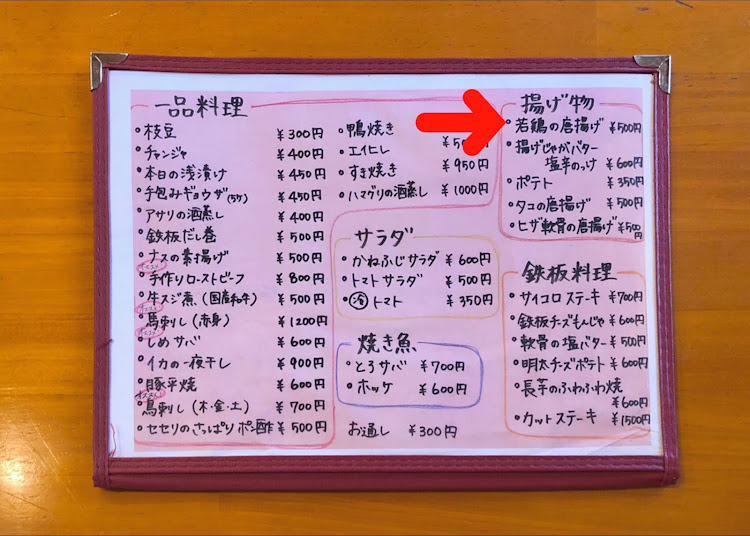 一品料理
・枝豆 ¥300円
・チャンジャ ¥400円
・本日の浅漬け ¥450円
・手包みギョウザ(5ケ) ¥450円
・アサリの酒蒸し ¥400円
・鉄板だし巻 ¥500円
・ナスの素揚げ ¥500円
オススメ
・手作りローストビーフ ¥800円
・牛スジ煮(国産和牛) ¥500円
オススメ
・馬刺し(赤身) ¥1200円
オススメ
・しめサバ ¥600円
・イカの一夜干し ¥900円
・豚平焼 ¥600円
オススメ
・鳥刺し(木・金・土) ¥700円
・セセリのさっぱりポン酢 ¥500円
・鴨焼き
・エイヒレ
・すき焼き ¥950円
・ハマグリの酒蒸し ¥1000円
サラダ
・かねふじサラダ ¥600円
・トマトサラダ ¥500円
・冷トマト ¥350円
焼き魚
・とろサバ ¥700円
・ホッケ ¥600円
お通し ¥300円
揚げ物
・若鶏の唐揚げ ¥500円
・揚げじゃがバター
塩辛のっけ ¥600円
・ポテト ¥350円
・タコの唐揚げ ¥500円
・ヒザ軟骨の唐揚げ ¥500円
鉄板料理
・サイコロステーキ ¥700円
・鉄板チーズもんじゃ ¥600円
・軟骨の塩バター ¥500円
・明太チーズポテト ¥600円
・長芋のふわふわ焼
¥600円
・カットステーキ ¥1500円